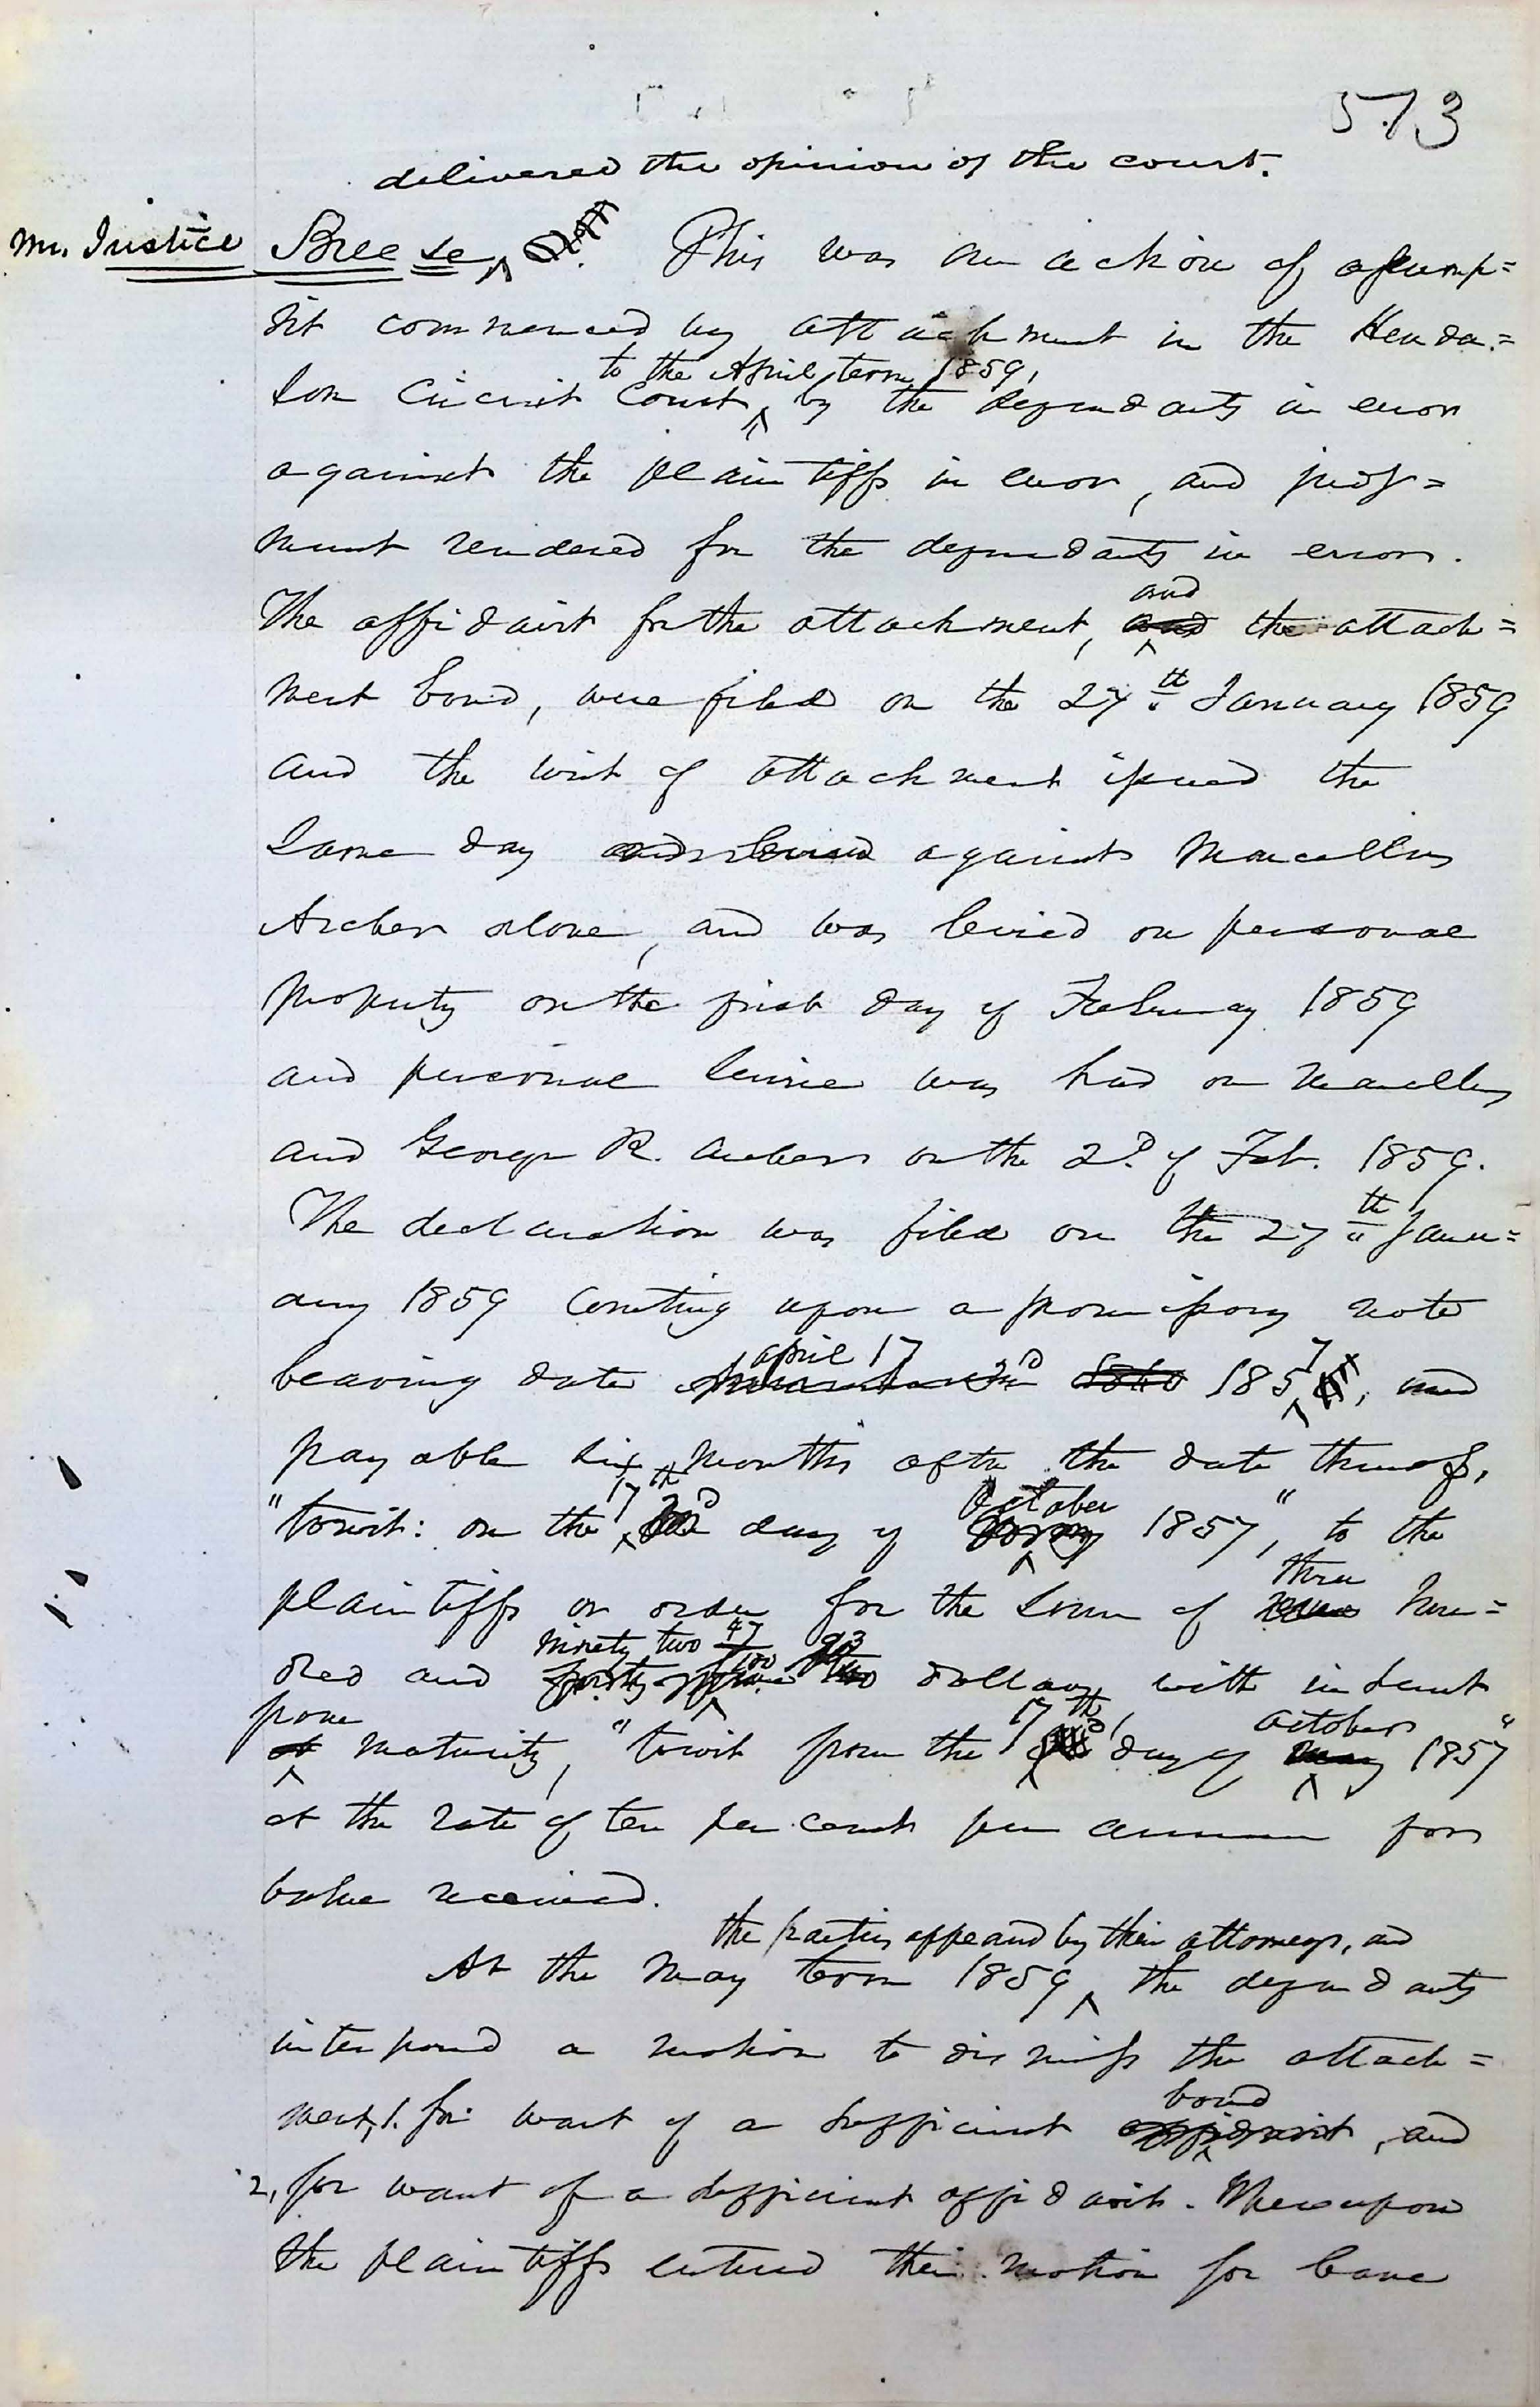 573
delivered the opinion of the court.
Mr. Justice Breese, This was an action of assump=
sit commenced by attachment in the Hender=
to the April term 1859,
son Circuit Court by the defendants in error
against the plaintiffs in error, and judg=
ment rendered for the defendants in error.
and
The affidavit for the attachment, and the attach=
ment bond, were filed on the 27th January 1859
and the writ of attachment issued the
same day and levied against Marcellus
Archer alone, and was levied on personal
property on the first day of February 1859
and personal service was had on Marcellus
and George R. Archer on the 2d. of Feb. 1859.
The declaration was filed on the 27th Janu=
ary 1859 Counting upon a promissory note
april 17 7
bearing date 2d 1860 185, and
payable six months after the date thereof,
17th October
"towit: on the day of 1857", to the
three
plaintiffs or order for the sum of hun=
ninety two 47/100 93
dred and forty dollars, with interest
from 17th October
at maturity, "towit from the day of may 1857"
at the rate of ten per cent per annum for
value received.
the parties appeared by their attorneys, and
At the May term 1859, the defendants
interposed a motion to dismiss the attach=
bond
ment, 1. for want of a sufficient affidavit, and
2, for want of a sufficient affidavit. Thereupon
the plaintiffs entered their motion for leave